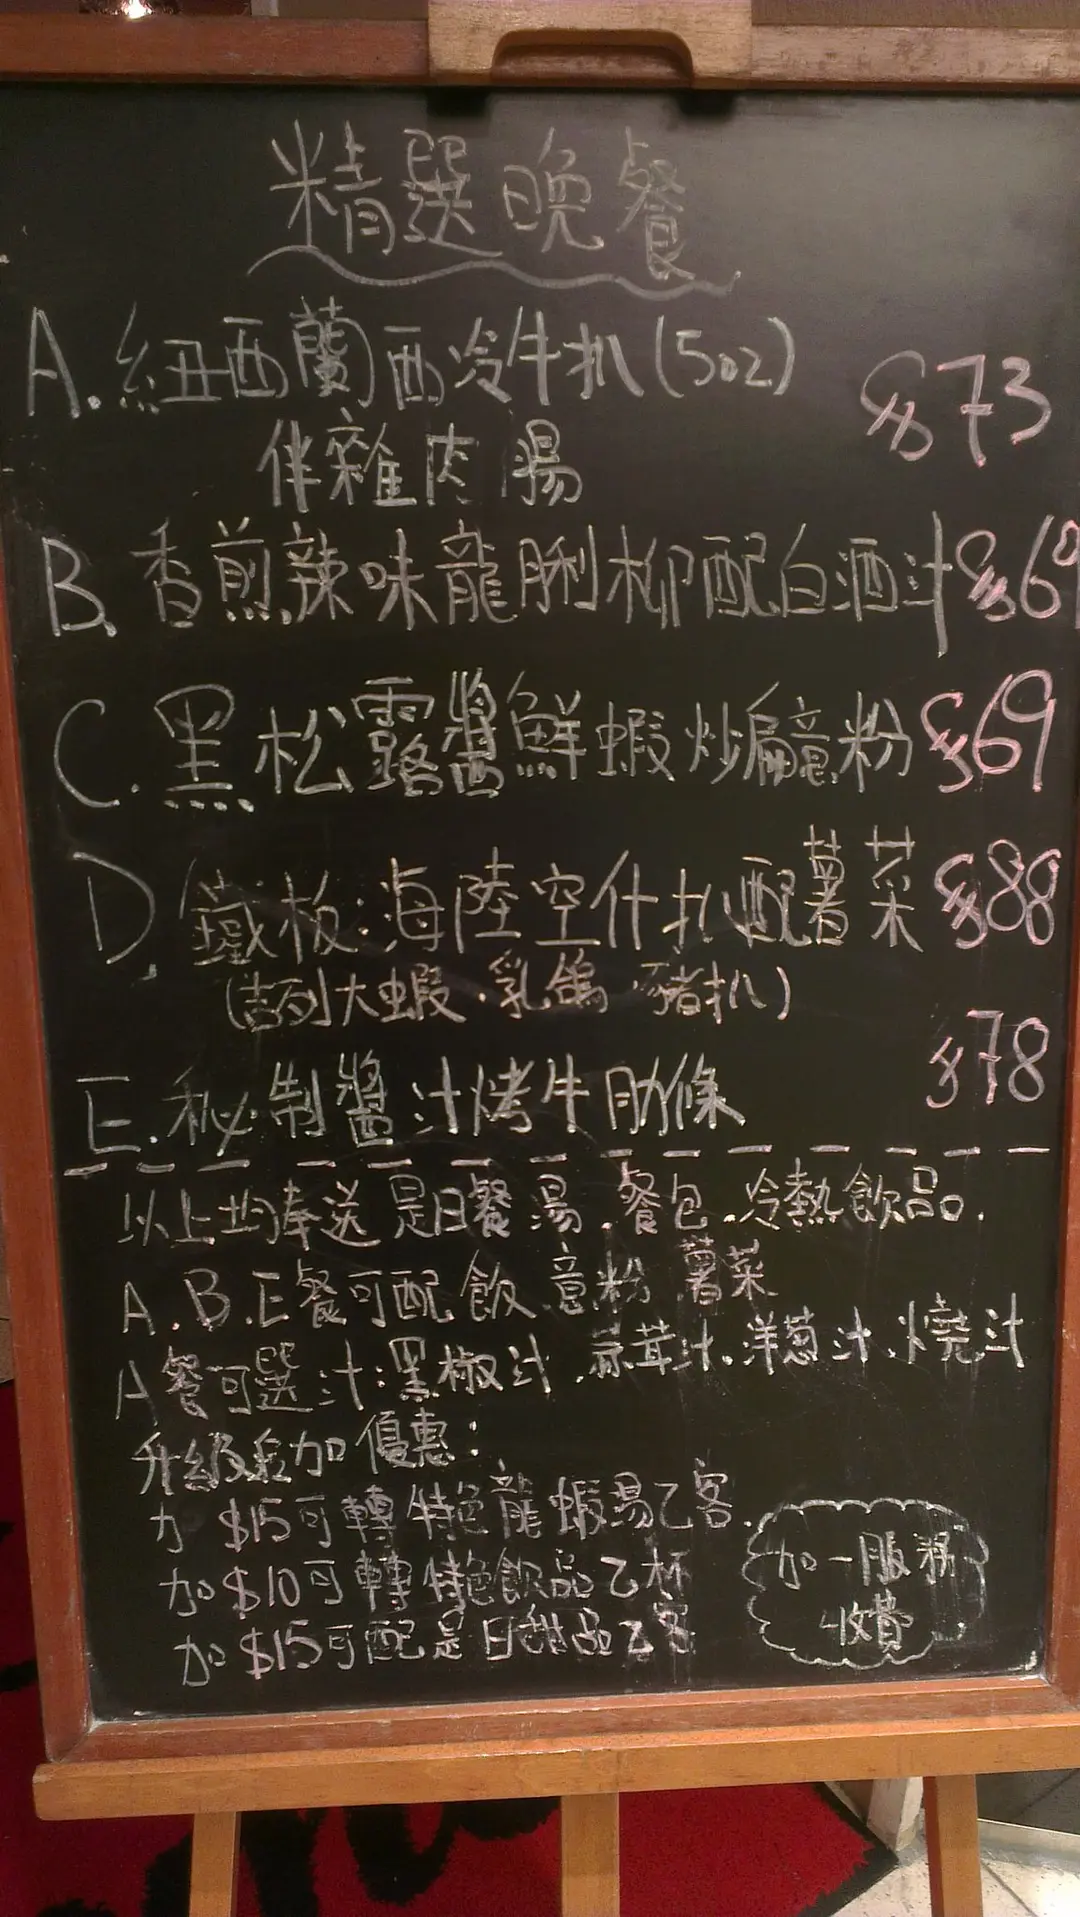 精選晚餐
A.紐西蘭西冷牛扒(5oz) $73
伴雜肉腸
B.香煎辣味龍脷柳配白酒汁 $69
C.黑松露醬鮮蝦炒扁意粉 $69
D.鐵板:海陸空什扒配薯菜 $88
(吉列大蝦.乳鴿.豬扒)
E.秘制醬汁烤牛肋條 $78
以上均奉送是日餐湯.餐包.冷熱飲品.
A.B.E餐可配飯.意粉.薯菜
A餐可選汁:黑椒汁.蒜茸汁.洋葱汁.燒汁
升級 加優惠:
加 $15可轉特色龍蝦湯乙客.
加 $10可轉特色飲品乙杯
加 $15可配是日甜品乙客
加一服務
收費.